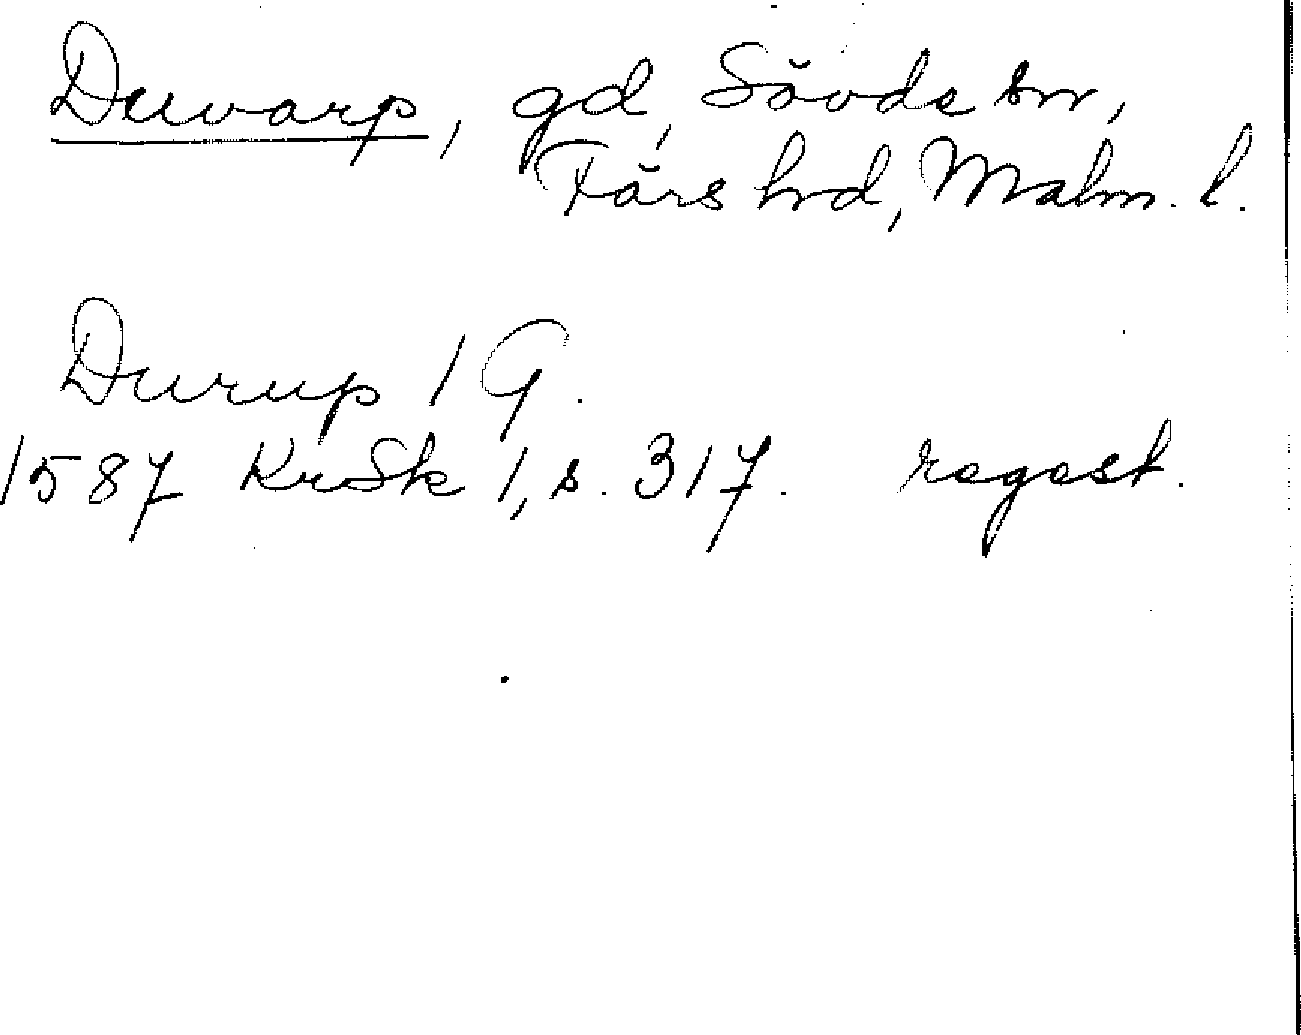 Duvarp, gd, Sövde sn,
Färs hrd, Malm. l.
Durup 1 G.
1587 KrSk 1, s. 317. regest.